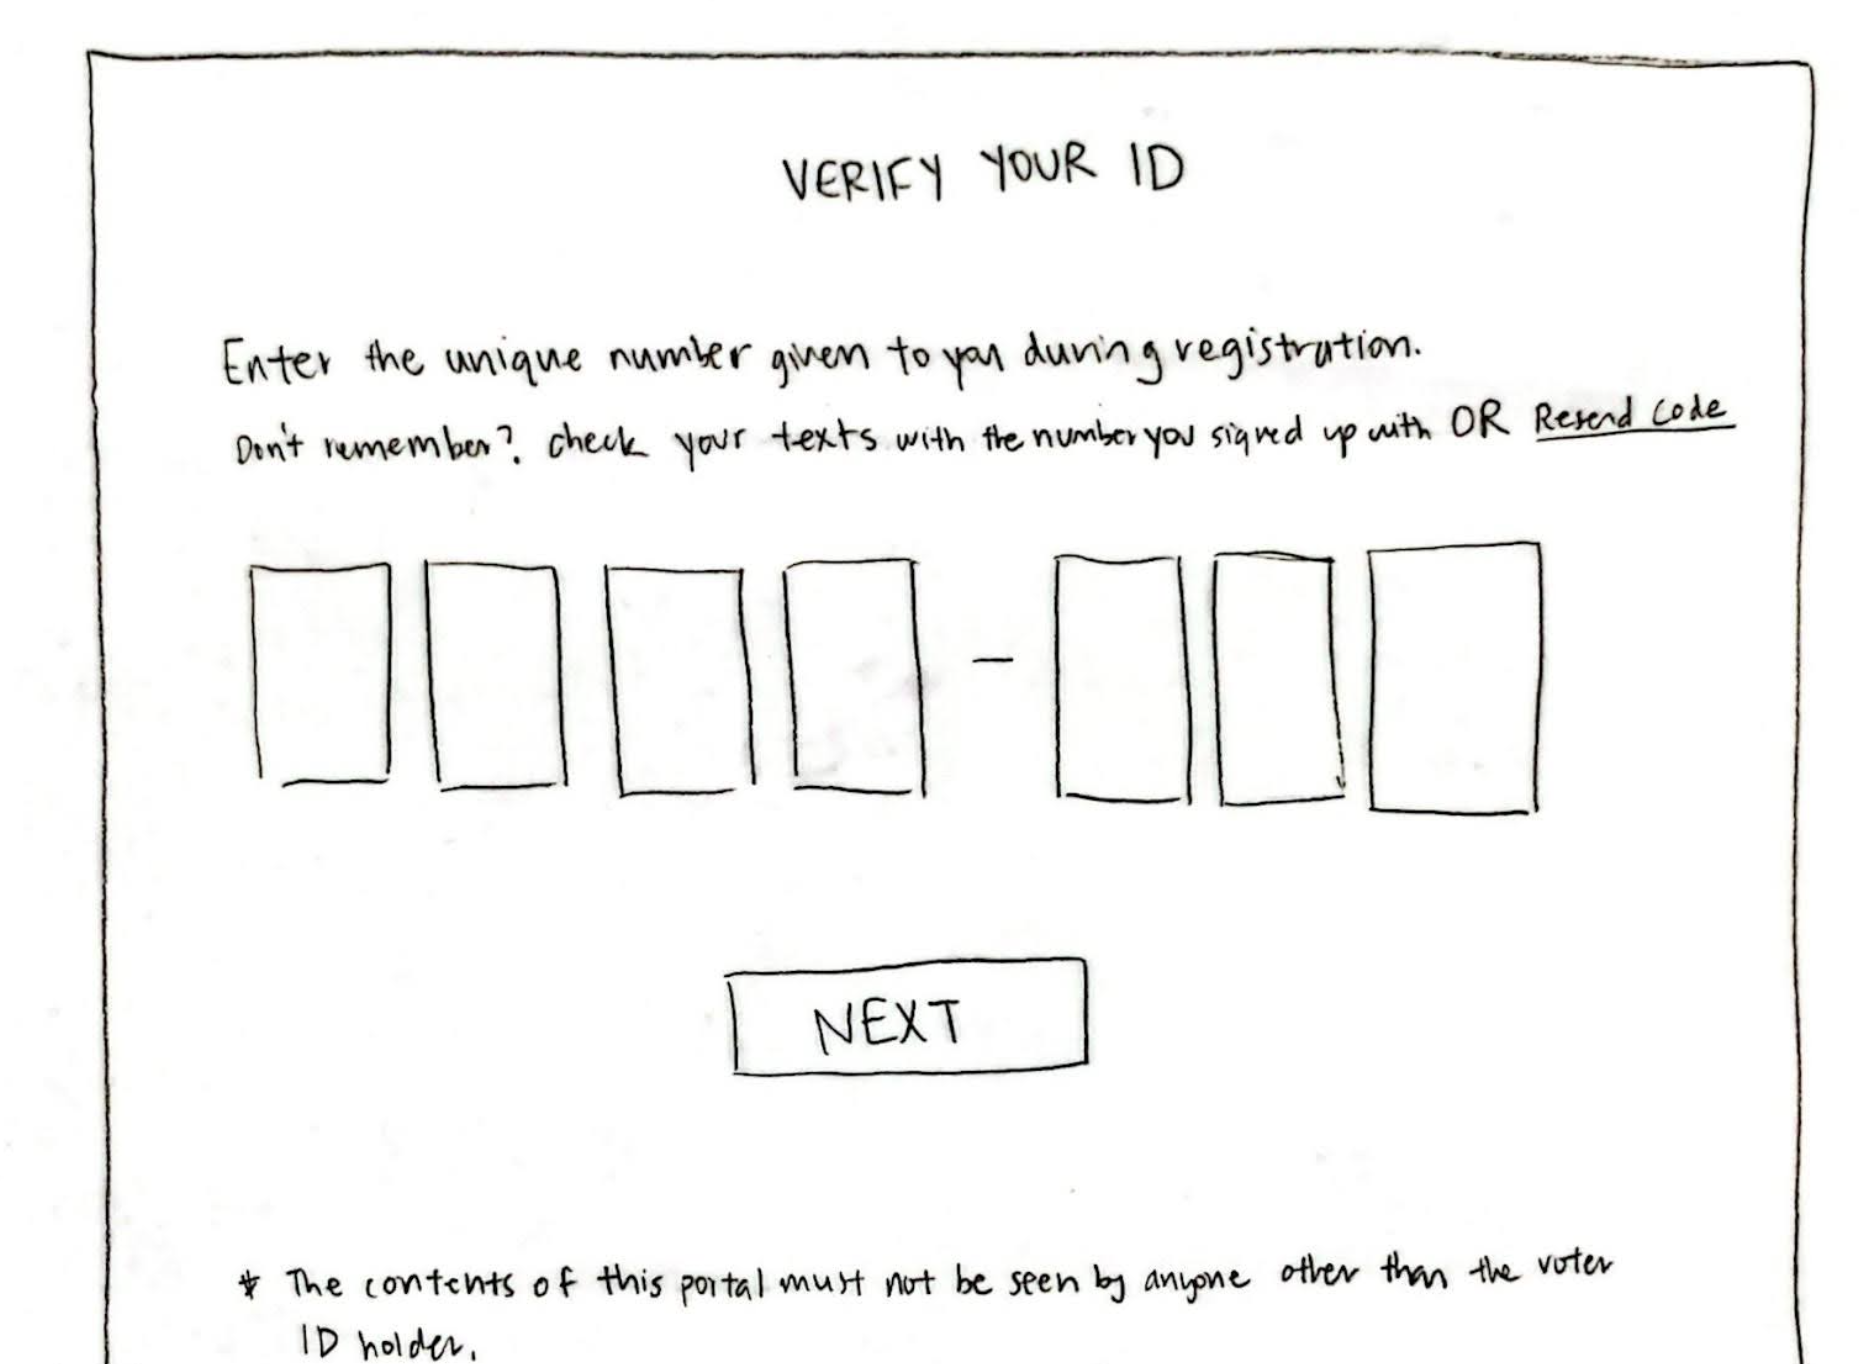 VERIFY YOUR ID
Enter the unique number given to you during registration.
Don't remember? check your texts with the number you signed up with OR Resend Code
–
NEXT
* The contents of this portal must not be seen by anyone other than the voter
ID holder.